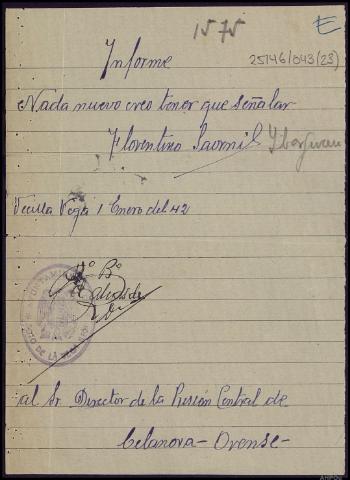 1575
E
Informe
25146/043(23)
Nada nuevo creo tener que señalar
Florentino Saornil
Vecilla Vega 1 Enero del 42
Vº Bº
al Sr Director de la Prisión Central de
Celanova - Orense -